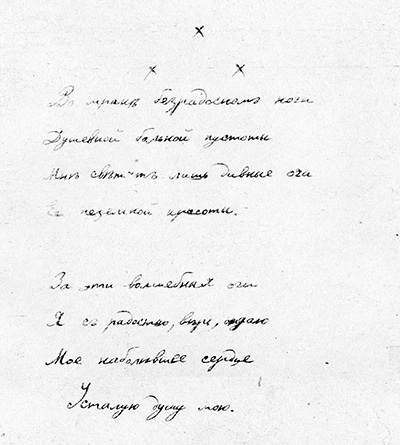 ×
× ×
Во мракѣ безрадостномъ ночи
Душевной больной пустоты
Мнѣ свѣтятъ лишь дивные очи
Ея неземной красоты.
За эти волшебныя очи
Я съ радостью, вѣрь, отдаю
Мое наболѣвшее сердце
Усталую душу мою.